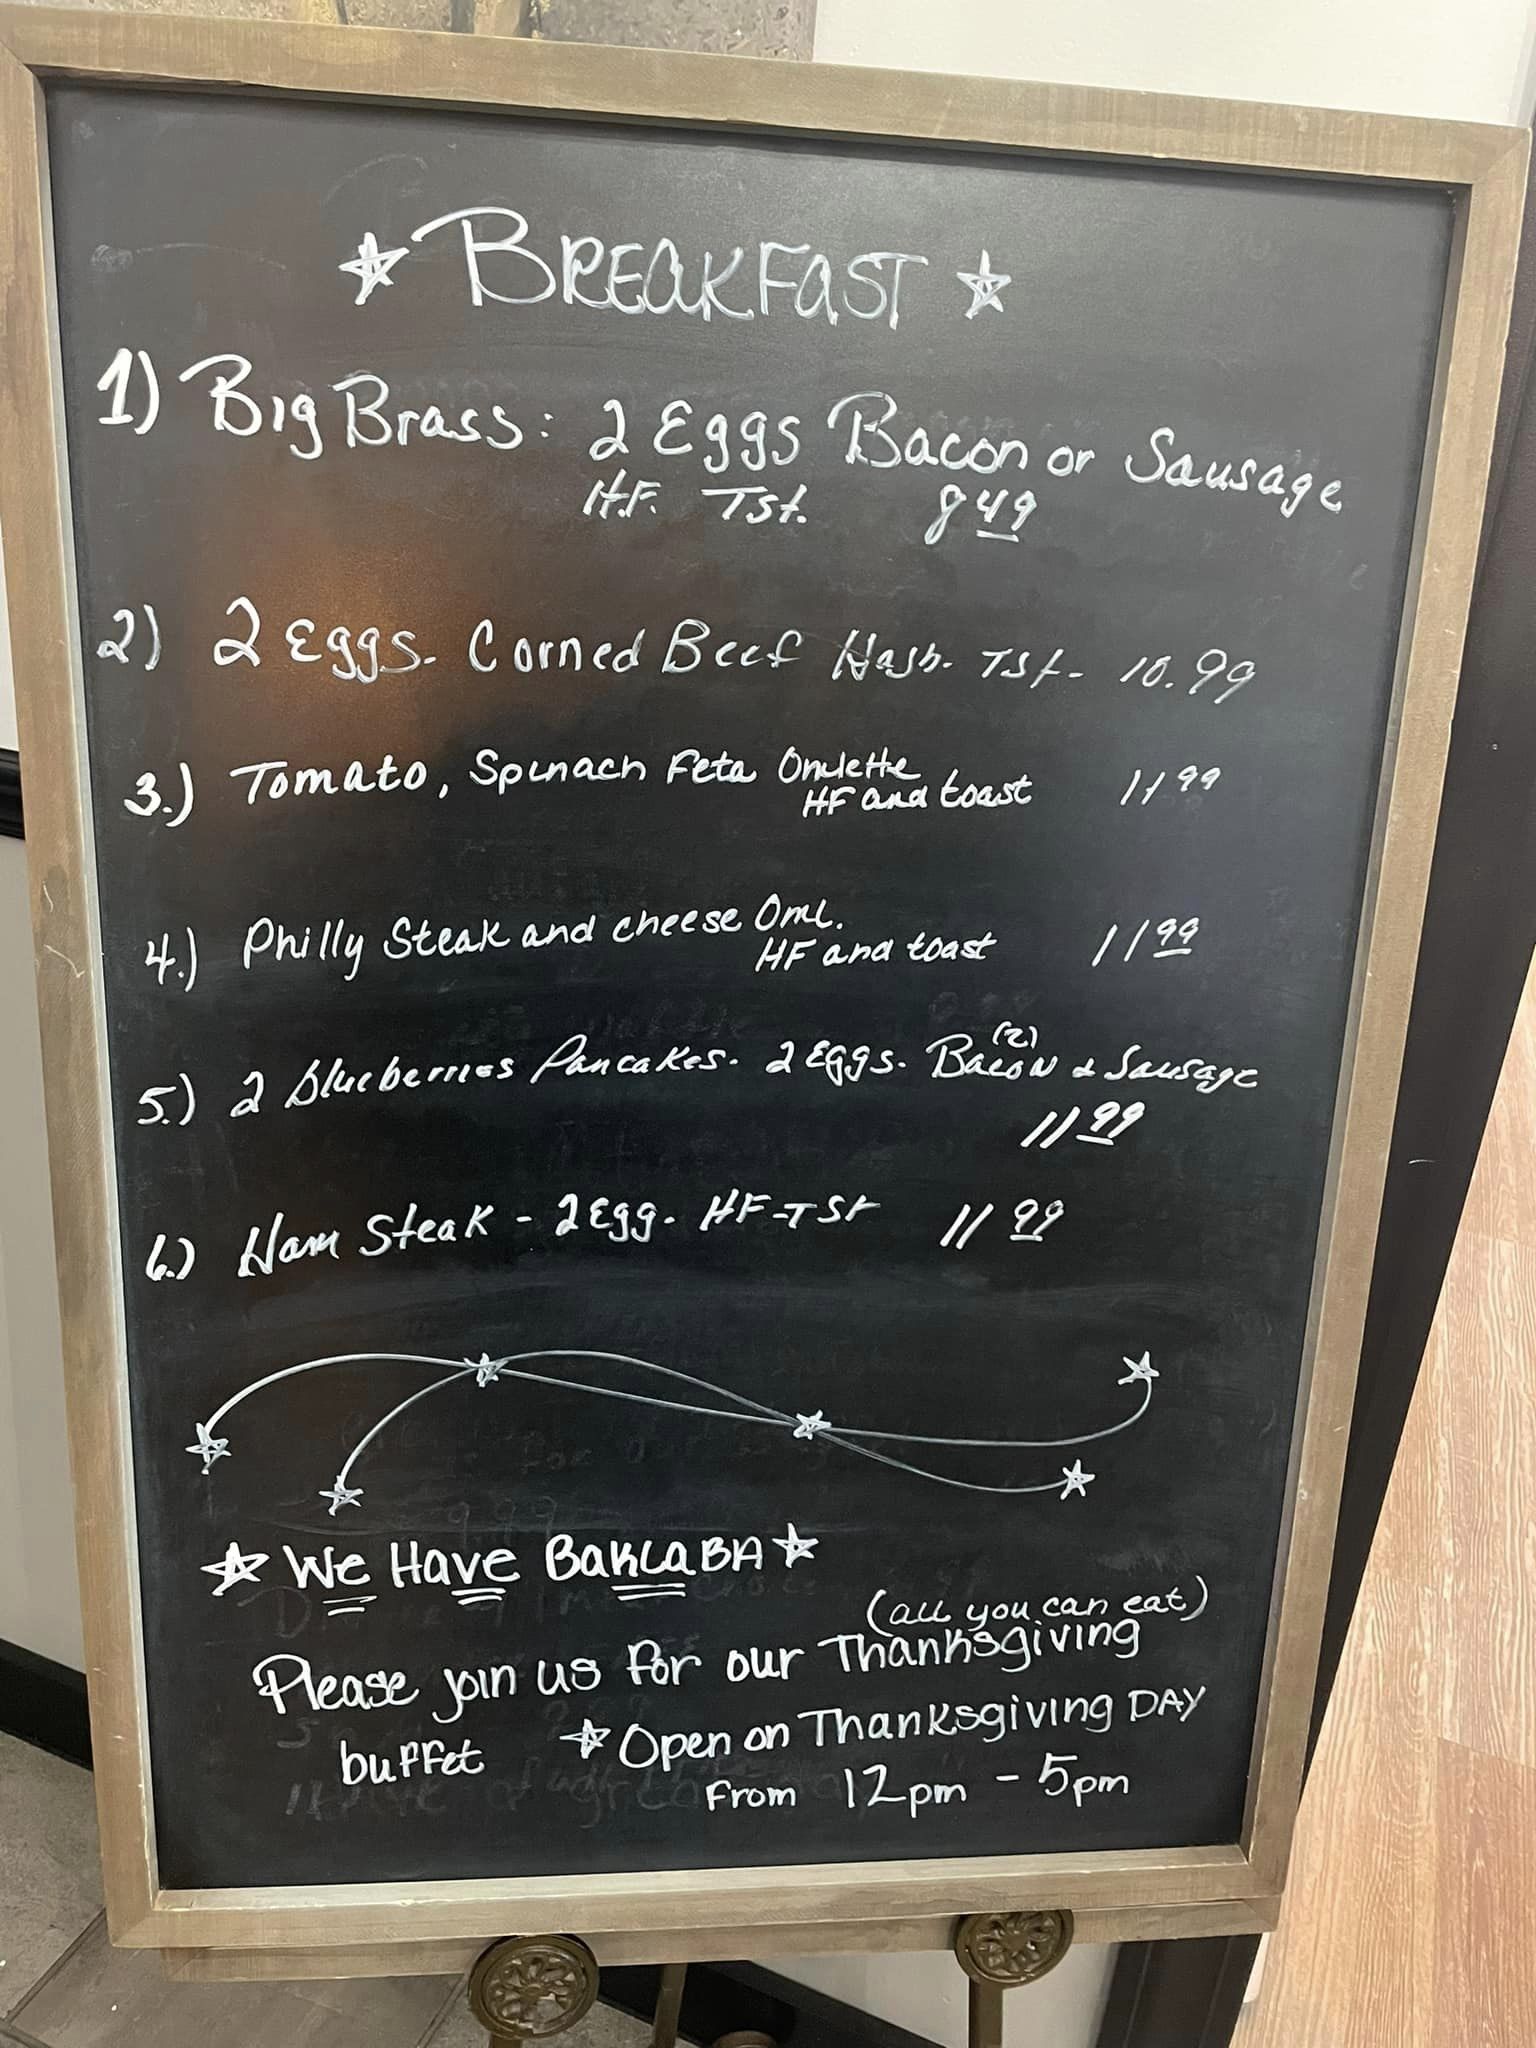 BREAKFAST
1) Big Brass: 2 Eggs Bacon or Sausage
H.F. Tst. 8 49
2) 2 Eggs. Corned Beef Hash. Tst- 10.99
3.) Tomato, Spinach Feta Omlette
HF and toast 11 99
4.) Philly Steak and cheese Oml.
HF and toast 11 99
5.) 2 blueberries Pancakes. 2 Eggs. Bacon (2) & Sausage
11 99
6.) Ham Steak - 2 Egg. HF-TST 11 99
We Have BaklaBA
(all you can eat)
Please join us for our Thanksgiving
buffet Open on Thanksgiving DAY
From 12pm - 5pm